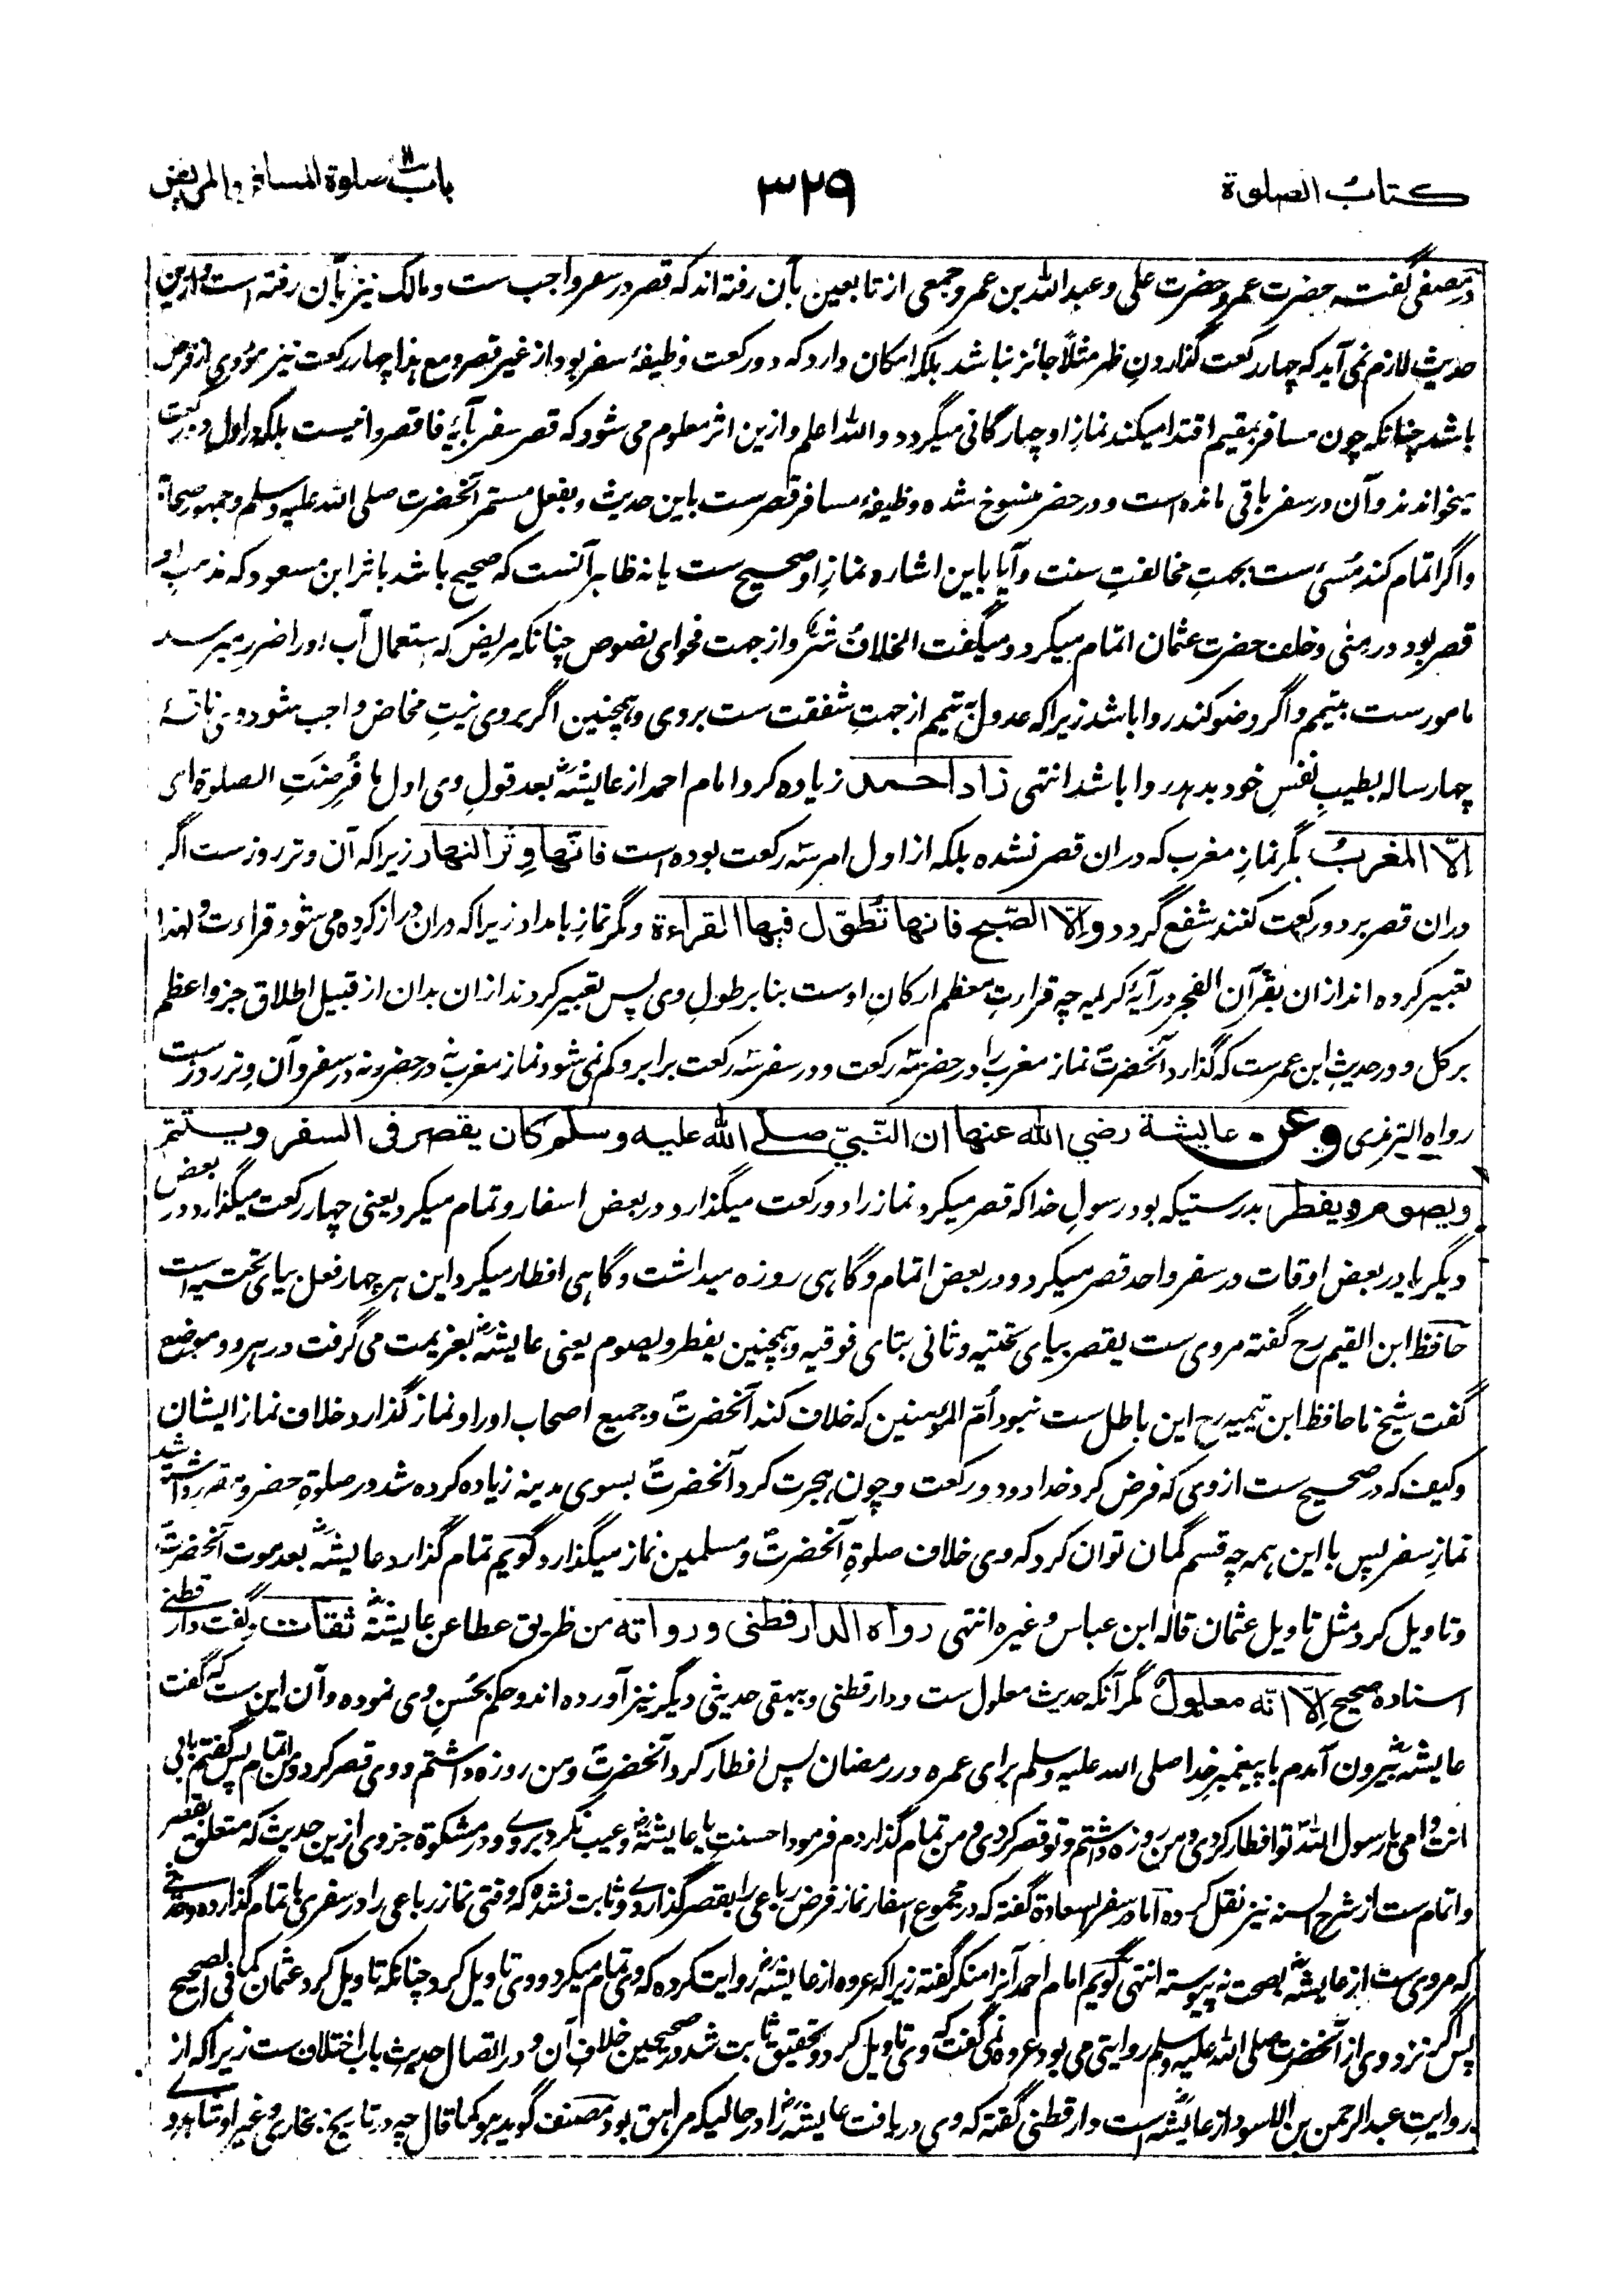 كتاب الصلوة
٣٢٩
باب صلوة المسافر والمريض
در مصفی گفته حضرت عمر و حضرت علی و عبد الله بن عمر و جمعی از تابعین بآن رفته اند که قصر در سفر واجب ست و مالک نیز بآن رفته است و ازین
حدیث لازم نمی آید که چهار رکعت گذاردن ظهر مثلاً جائز نباشد بلکه امکان دارد که دو رکعت وظیفهٔ سفر بود از غیر قصر و مع هذا چهار رکعت نیز مؤدی از فرض
باشد چنانکه چون مسافر بمقیم اقتدا میکند نماز او چهارگانی میگردد والله اعلم و ازین اثر معلوم می شود که قصر سفر بآیهٔ فاقصروا نیست بلکه در اول دو رکعت
میخواندند و آن در سفر باقی مانده است و در حضر منسوخ شده وظیفهٔ مسافر قصر ست باین حدیث و بفعل مستمر آنحضرت صلی الله علیه وسلم و جمهور صحابه
و اگر اتمام کند مسئ ست بجهت مخالفت سنت و آیا باین اشاره نماز او صحیح ست یا نه ظاهر آنست که صحیح باشد باثر ابن مسعود که مذهب او
قصر بود در منی و خلف حضرت عثمان اتمام میکرد و میگفت الخلاف شر و از جهت فحوای نصوص چنانکه مریض که استعمال آب او را ضرر میرسد
مامور ست بتیمم و اگر وضو کند روا باشد زیرا که عدول به تیمم از جهت شفقت ست بروی و همچنین اگر بروی بنت مخاض واجب شود و وی ناقهٔ
چهار ساله بطیب نفس خود بدهد روا باشد انتهی زاد احمد زیاده کرد امام احمد از عایشهؓ بعد قول وی اول ما فرضت الصلوة ای
الّا المغرب مگر نماز مغرب که دران قصر نشده بلکه از اول امر سه رکعت بوده است فانها وتر النهار زیرا که آن وتر روز ست اگر
دران قصر بر دو رکعت کنند شفع گردد و الّا الصّبح فانها تُطوَّل فيها القراءة و مگر نماز بامداد زیرا که دران دراز کرده می شود قراءت و لهذا
تعبیر کرده اند ازان بقرآن الفجر در آیهٔ کریمه چه قراءت معظم ارکان اوست بنا بر طول وی پس تعبیر کردند ازان بدان از قبیل اطلاق جزو اعظم
بر کل و در حدیث ابن عمر ست که گذارد آنحضرتؐ نماز مغرب را در حضر سه رکعت و در سفر سه رکعت برابر و کم نمی شود نماز مغرب نه در حضر و نه در سفر و آن وتر روز ست
رواه الترمذی وعن عايشة رضي الله عنها ان النّبيّ صلے الله عليه وسلم كان يقصر فى السفر ويتم
ويصوم ويفطر بدرستیکه بود رسول خدا که قصر میکرد نماز را دو رکعت میگذارد در بعض اسفار و تمام میکرد یعنی چهار رکعت میگذارد در بعض
دیگر یا در بعض اوقات در سفر واحد قصر میکرد و در بعض اتمام و گاهی روزه میداشت و گاهی افطار میکرد این هر چهار فعل بیای تحتیه است
حافظ ابن القیم رح گفته مروی ست یقصر بیای تحتیه و ثانی بتای فوقیه و همچنین یفطر و یصوم یعنی عایشهؓ بعزیمت می گرفت در هر دو موضع
گفت شیخ ما حافظ ابن تیمیه رح این باطل ست نبود أمّ المؤمنین که خلاف کند آنحضرتؐ و جمیع اصحاب او را و نماز گذارد خلاف نماز ایشان
و کیف که در صحیح ست از وی که فرض کرد خدا دو دو رکعت و چون هجرت کرد آنحضرتؐ بسوی مدینه زیاده کرده شد در صلوة حضر و مقرر داشته شد
نماز سفر پس با این همه چه قسم گمان توان کرد که وی خلاف صلوة آنحضرتؐ و مسلمین نماز میگذارد گویم تمام گذارد عایشهؓ بعد موت آنحضرتؐ
و تاویل کرد مثل تاویل عثمان قاله ابن عباس و غیره انتهی رواه الدارقطنى ورواته من طریق عطا عن عایشةؓ ثقات گفت دارقطنی
اسناده صحیح الّا انّه معلول مگر آنکه حدیث معلول ست و دارقطنی و بیهقی حدیثی دیگر نیز آورده اند و حکم بحُسن وی نموده و آن این ست که گفت
عایشهؓ بیرون آمدم با پیغمبر خدا صلی الله علیه وسلم برای عمره در رمضان پس افطار کرد آنحضرتؐ و من روزه داشتم و وی قصر کرد و من اتمام پس گفتم بابی
انت و امی یا رسول اللهؐ تو افطار کردی و من روزه داشتم و تو قصر کردی و من تمام گذاردم فرمود احسنت یا عایشةؓ و عیب نکرد بروے و در مشکوة جزوی ازین حدیث که متعلق بقصر
و اتمام ست از شرح السنه نیز نقل کرده اما در سفر السعادة گفته که در مجموع اسفار نماز فرض رباعی را بقصر گذاردے و ثابت نشده که وقتی نماز رباعی را در سفری تمام گذارده و حدیثی
که مروی ست از عایشهؓ بصحت نه پیوسته انتهی گویم امام احمد آنرا منکر گفته زیرا که عروه از عایشهؓ روایت کرده که وی تمام میکرد و وی تاویل کرد چنانکه تاویل کرد عثمان کما فی الصحیح
پس اگر نزد وی از آنحضرت صلی الله علیه وسلم روایتی می بود عروه نمی گفت که وی تاویل کرد و بتحقیق ثابت شد در صحیحین خلاف آن و در اتصال حدیث باب اختلاف ست زیرا که از
روایت عبد الرحمن بن الاسود از عایشهؓ است دارقطنی گفته که وی دریافت عایشهؓ را در حالیکه مراهق بود مصنف گوید هو کما قال چه در تاریخ بخاری و غیر او شاهد